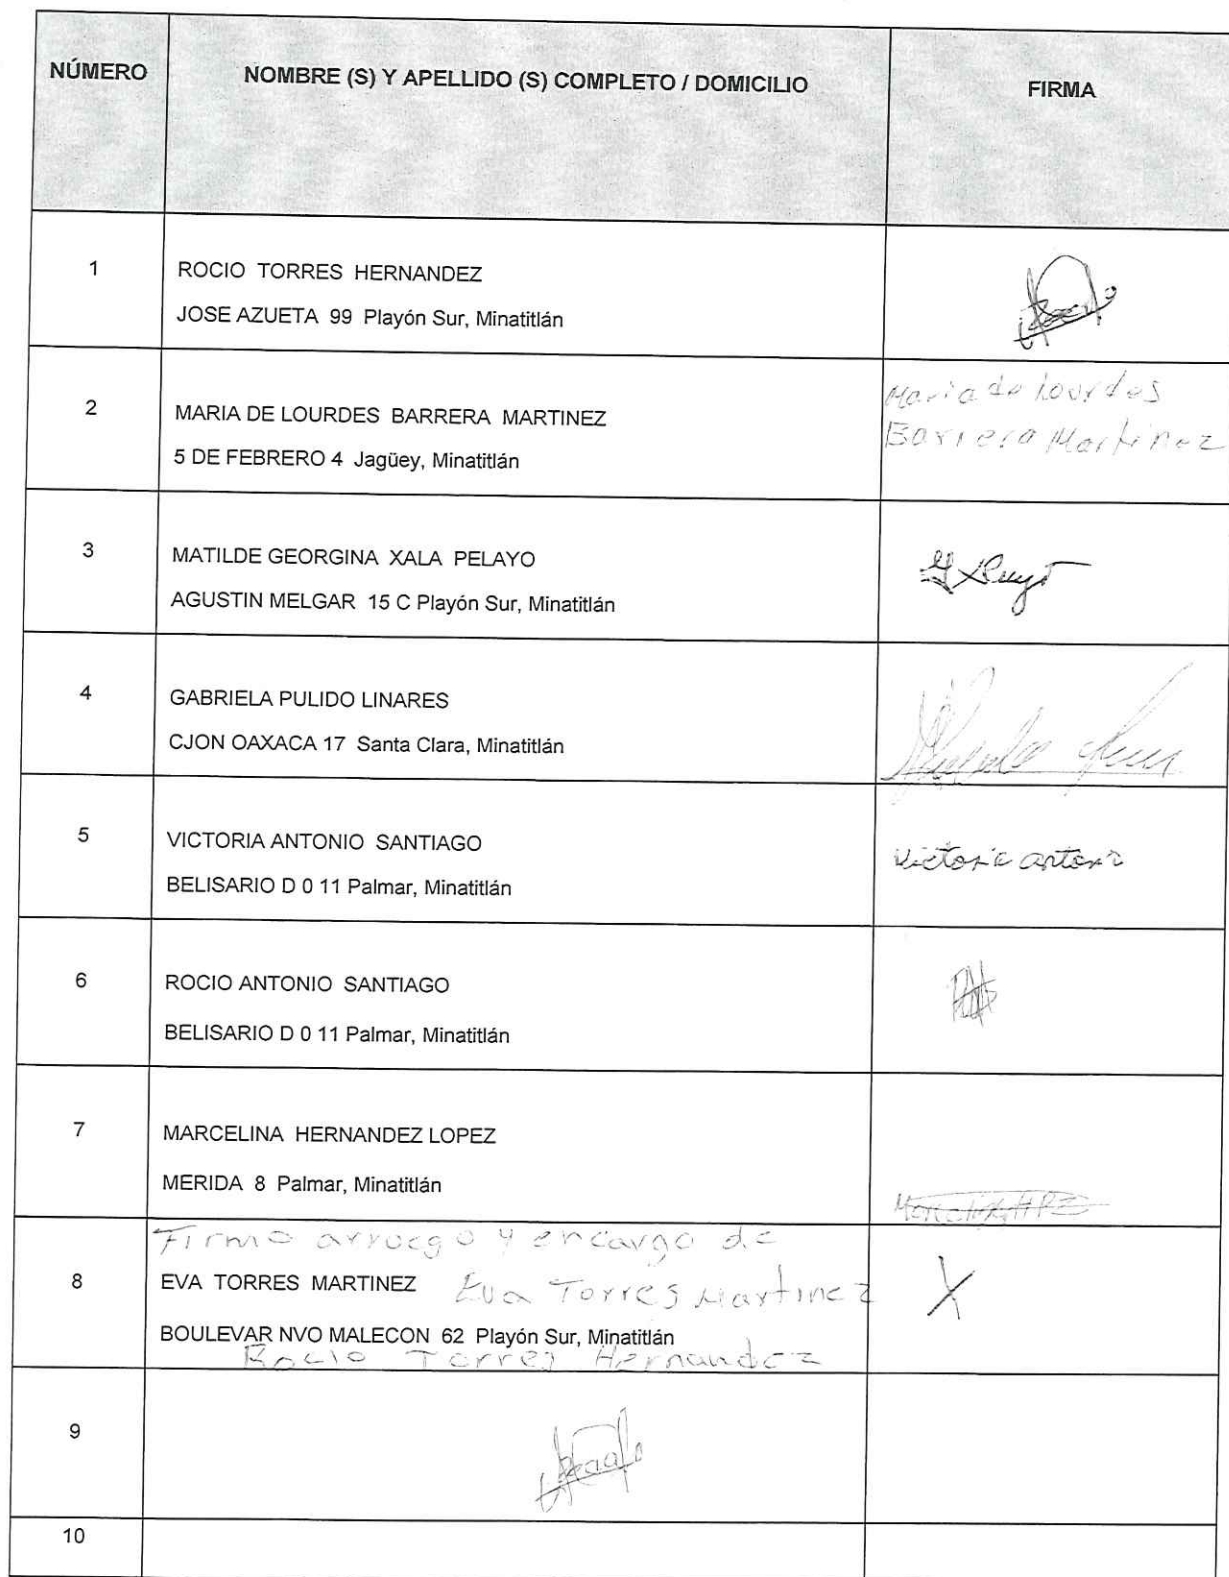 NÚMERO
NOMBRE (S) Y APELLIDO (S) COMPLETO / DOMICILIO
FIRMA
1
ROCIO TORRES HERNANDEZ
JOSE AZUETA 99 Playón Sur, Minatitlán
2
MARIA DE LOURDES BARRERA MARTINEZ
5 DE FEBRERO 4 Jagüey, Minatitlán
Maria de Lourdes
Barrera Martinez
3
MATILDE GEORGINA XALA PELAYO
AGUSTIN MELGAR 15 C Playón Sur, Minatitlán
4
GABRIELA PULIDO LINARES
CJON OAXACA 17 Santa Clara, Minatitlán
5
VICTORIA ANTONIO SANTIAGO
BELISARIO D 0 11 Palmar, Minatitlán
Victoria antonio
6
ROCIO ANTONIO SANTIAGO
BELISARIO D 0 11 Palmar, Minatitlán
7
MARCELINA HERNANDEZ LOPEZ
MERIDA 8 Palmar, Minatitlán
Firmo arruego y encargo de
8
EVA TORRES MARTINEZ Eva Torres Martinez
X
BOULEVAR NVO MALECON 62 Playón Sur, Minatitlán
Rocio Torres Hernandez
9
10